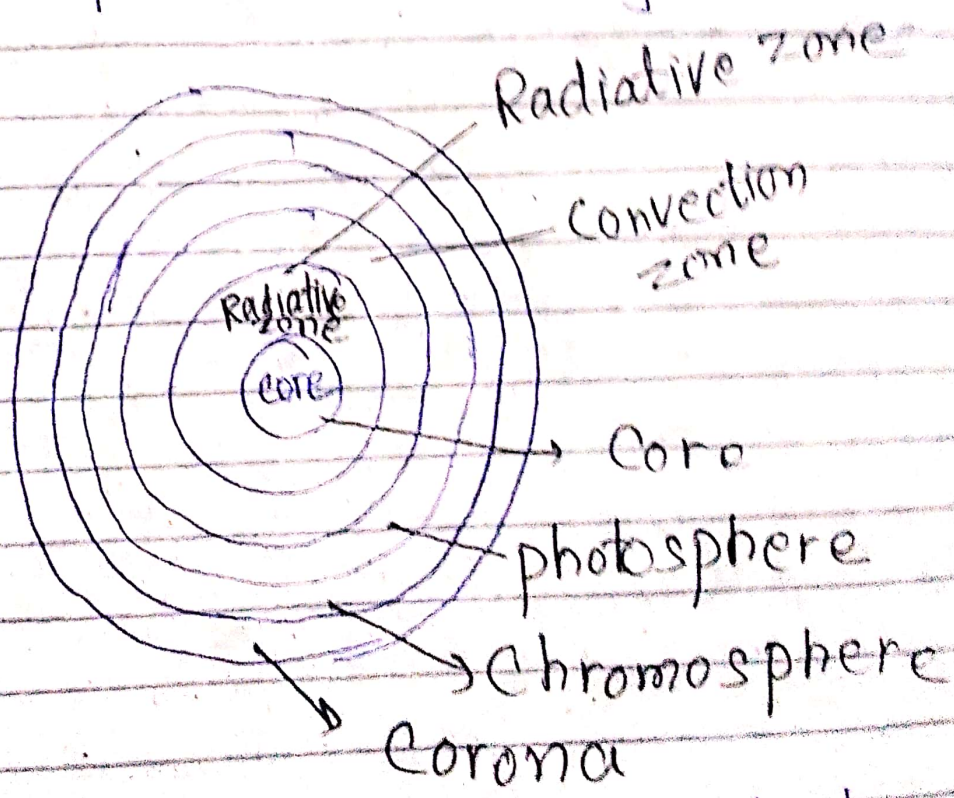 Radiative zone
Convection
zone
Radiative
zone
core
Core
photosphere
Chromosphere
Corona